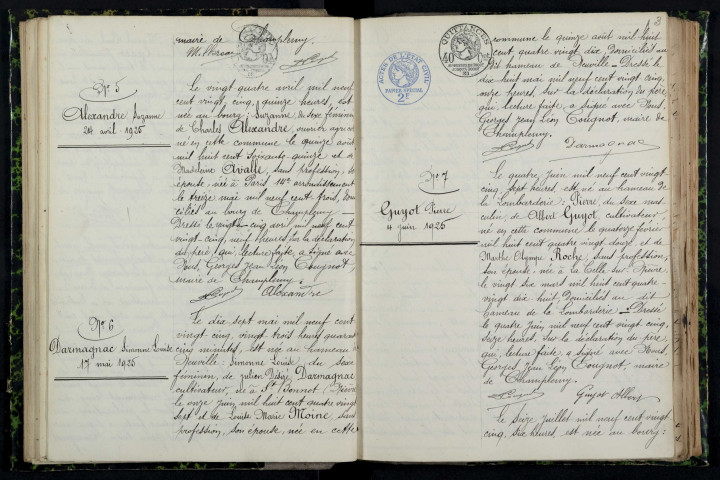 mairie de Champlemy.
N° 5
Alexandre Suzanne
24 avril 1925
Le vingt-quatre avril mil neuf
cent vingt, cinq, quinze heures, est
née au bourg: Suzanne, du sexe féminin
de Charles Alexandre, ouvrier agricole
né en cette commune le quinze août
mil huit cent soixante-quinze et de
Madeleine Avalle, sans profession, son
épouse, née à Paris 14e arrondissement
le treize mai mil neuf cent trois, domi-
ciliés au bourg de Champlemy —
Dressé le vingt-cinq avril mil neuf cent
vingt-cinq, neuf heures sur la déclaration
du père qui, lecture faite, a signé avec
Nous, Georges Jean Léon Tougnot,
maire de Champlemy.
Alexandre
N° 6
Darmagnac Simonne Louise
17 mai 1925
Le dix sept mai mil neuf cent
vingt-cinq, vingt-trois heures quarante
cinq minutes, est née au hameau de
Neuville: Simonne Louise, du sexe
féminin, de Julien Désiré Darmagnac
cultivateur, né à St Bonnot, Nièvre
le onze juin mil huit cent quatre vingt
sept et de Louise Marie Moine, sans
profession, son épouse, née en cette
3
ACTES DE L'ÉTAT CIVIL
PAPIER SPÉCIAL
2F
QUITTANCES
commune le quinze août mil huit
cent, quatre vingt dix, domiciliés au
dit hameau de Neuville — Dressé le
dix huit mai mil neuf cent vingt cinq,
onze heures, sur la déclaration du père
qui, lecture faite, a signé avec Nous,
Georges Jean Léon Tougnot, maire de
Champlemy.
Darmagnac
N° 7
Guyot Pierre
4 juin 1925
Le quatre juin mil neuf cent vingt
cinq, sept heures, est né au hameau de
la Lombarderie: Pierre, du sexe mas-
culin, de Albert Guyot, cultivateur,
né en cette commune le quatorze février
mil huit cent quatre vingt douze et de
Marthe Olympe Roche, sans profession,
son épouse, née à la Celle sur Nièvre
le vingt six mars mil huit cent quatre-
vingt dix huit, domiciliés au dit
hameau de la Lombarderie — Dressé
le quatre juin mil neuf cent vingt cinq,
seize heures, sur la déclaration du père
qui, lecture faite, a signé avec Nous,
Georges Jean Léon Tougnot, maire
de Champlemy.
Guyot Albert
Le seize juillet mil neuf cent vingt
cinq, six heures, est née au bourg: